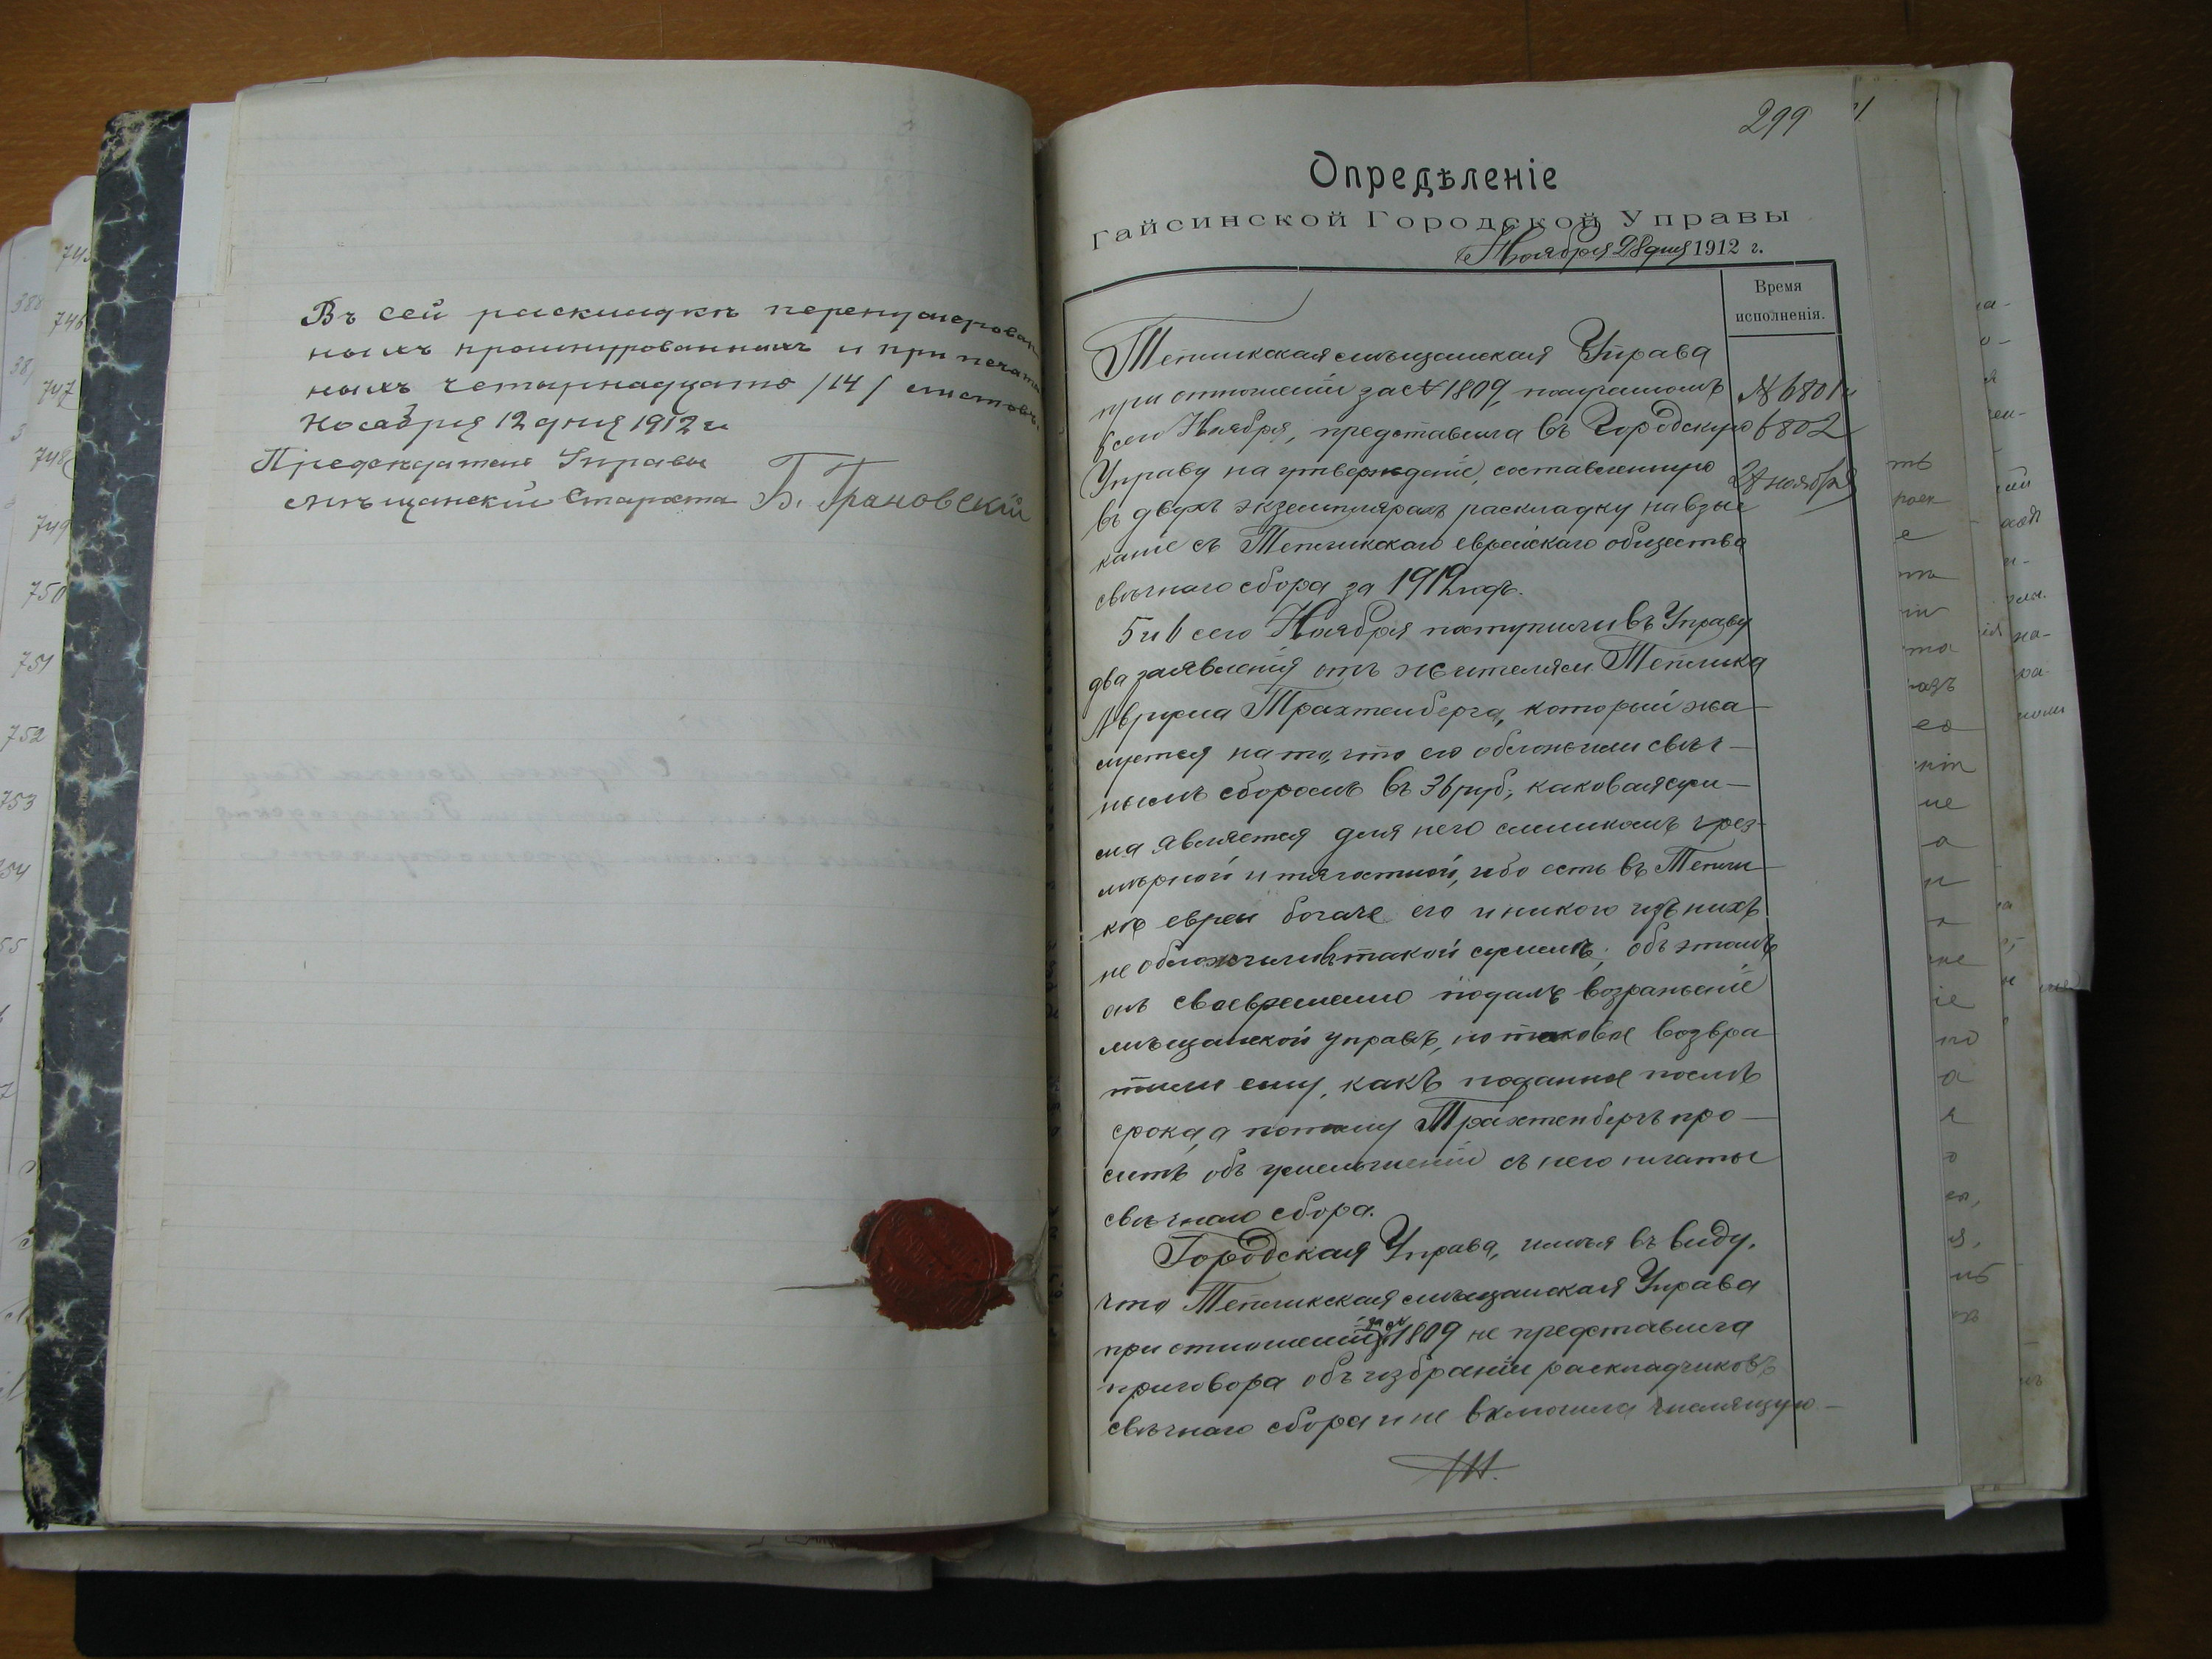 Въ сей раскладкѣ перенумерован
ныхъ прошнурованныхъ и припечатан
ныхъ четырнадцать /14/ листовъ.
Ноября 12 дня 1912 г.
Предсѣдатель Управы
мѣщанскій Староста Б. Грановскій
299
Опредѣленіе
Гайсинской Городской Управы
Ноября 28 дня 1912 г.
Время
исполненія.
Тепликская мѣщанская Управа
при отношеніи за № 1809, полученномъ
сего Ноября, представила въ Городскую
Управу на утвержденіе, составленную
въ двухъ экземплярахъ раскладку на взыс
каніе съ Тепликскаго еврейскаго общества
свѣчнаго сбора за 1912 годъ.
№ 6801 и
6802
ноября
5 и 6 сего Ноября поступили въ Управу
два заявленія отъ жителя м. Теплика
Трахтенберга, который жа-
луется на то, что его обложили свѣч-
нымъ сборомъ въ 36 руб., каковая сум-
ма является для него слишкомъ чрез-
мѣрной и тягостной, ибо есть въ Тепли-
кѣ евреи богаче его и никого изъ нихъ
не обложили въ такой суммѣ; объ этомъ
онъ своевременно подалъ возраженіе
мѣщанской управѣ, но таковое возвра
тили ему, какъ поданное послѣ
срока, а потому Трахтенбергъ про-
ситъ объ уменьшеніи съ него платы
свѣчнаго сбора.
Городская Управа, имѣя въ виду,
что Тепликская мѣщанская Управа
при отношеніи за № 1809 не представила
приговора объ избраніи раскладчиковъ
свѣчнаго сбора и не включила числящую-
745
746
747
748
749
750
751
752
753
54
55